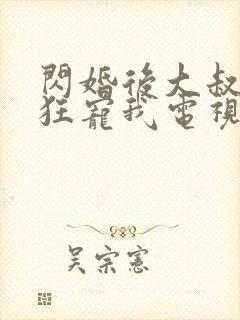 閃婚後大叔
狂寵我電視
吳宗憲